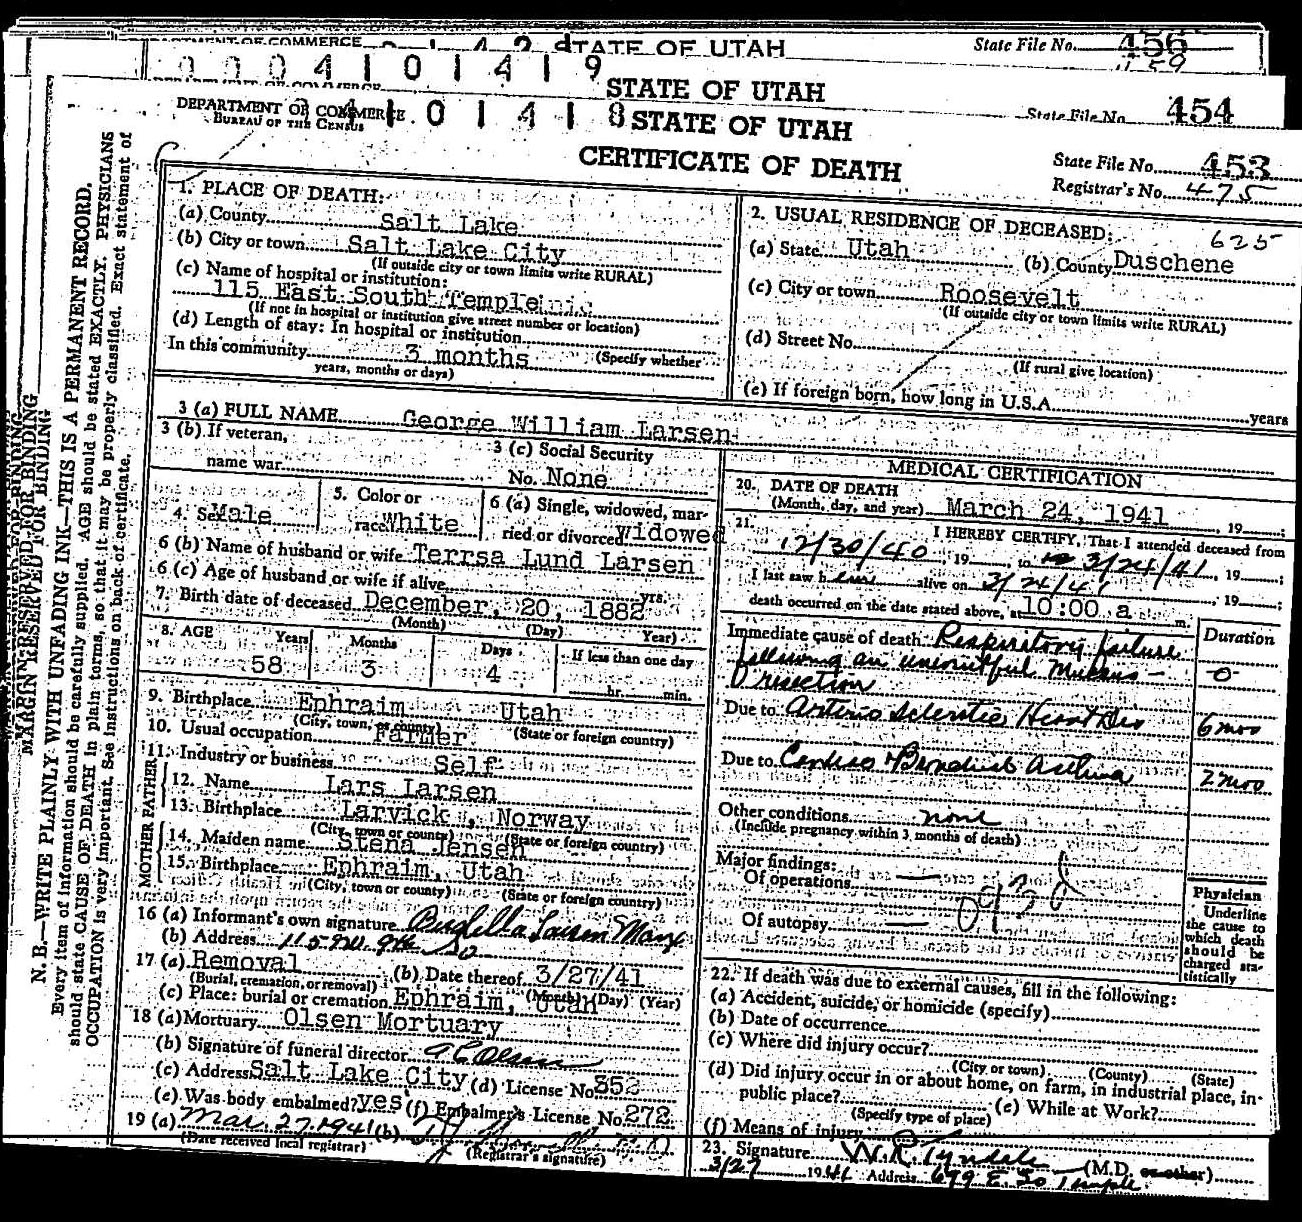 DEPARTMENT OF COMMERCE
STATE OF UTAH
State File No. 456
459
0 0 0 4 1 0 1 4 1 9
STATE OF UTAH
State File No. 454
DEPARTMENT OF COMMERCE
BUREAU OF THE CENSUS
4 1 0 1 4 1 8
STATE OF UTAH
CERTIFICATE OF DEATH
State File No. 453
Registrar's No. 475
MARGIN RESERVED FOR BINDING
N. B.—WRITE PLAINLY WITH UNFADING INK—THIS IS A PERMANENT RECORD.
Every item of information should be carefully supplied. AGE should be stated EXACTLY. PHYSICIANS
should state CAUSE OF DEATH in plain terms, so that it may be properly classified. Exact statement of
OCCUPATION is very important. See instructions on back of certificate.
1. PLACE OF DEATH:
(a) County Salt Lake
(b) City or town Salt Lake City
(If outside city or town limits write RURAL)
(c) Name of hospital or institution:
115 East South Temple
(If not in hospital or institution give street number or location)
(d) Length of stay: In hospital or institution
In this community 3 months (Specify whether
years, months or days)
2. USUAL RESIDENCE OF DECEASED:
625
(a) State Utah (b) County Duschene
(c) City or town Roosevelt
(If outside city or town limits write RURAL)
(d) Street No.
(If rural give location)
(e) If foreign born, how long in U.S.A. years
3 (a) FULL NAME George William Larsen
3 (b) If veteran,
name war
3 (c) Social Security
No. None
4. Sex Male
5. Color or
race White
6 (a) Single, widowed, mar-
ried or divorced Widowed
6 (b) Name of husband or wife Terrsa Lund Larsen
6 (c) Age of husband or wife if alive yrs.
7. Birth date of deceased December, 20, 1882
(Month) (Day) Year)
8. AGE Years Months Days If less than one day
58 3 4 hr. min.
9. Birthplace Ephraim Utah
(City, town, or county) (State or foreign country)
10. Usual occupation Farmer
11. Industry or business Self
FATHER
12. Name Lars Larsen
13. Birthplace Larvick, Norway
(City, town or county) (State or foreign country)
MOTHER
14. Maiden name Stena Jensen
15. Birthplace Ephraim, Utah
(City, town or county) (State or foreign country)
16 (a) Informant's own signature Birdella Larsen
(b) Address 115
17 (a) Removal (b) Date thereof 3/27/41
(Burial, cremation, or removal) (Month) (Day) (Year)
(c) Place: burial or cremation Ephraim, Utah
18 (a) Mortuary Olsen Mortuary
(b) Signature of funeral director
(c) Address Salt Lake City (d) License No. 352
(e) Was body embalmed? yes (f) Embalmer's License No. 272
19 (a) Mar. 27. 1941 (b)
(Date received local registrar) (Registrar's signature)
MEDICAL CERTIFICATION
20. DATE OF DEATH
(Month, day, and year) March 24, 1941, 19 ;
21. I HEREBY CERTIFY, That I attended deceased from
12/30/40, 19 , to 3/24/41, 19 ;
I last saw h im alive on 3/24/41, 19 ;
death occurred on the date stated above, at 10:00 a m.
Duration
Immediate cause of death Respiratory failure
following an
resection
0
Due to Arterio Sclerotic Heart Dis 6 mos
Due to Cardiac & Bronchial Asthma 2 mos
Other conditions none
(Include pregnancy within 3 months of death)
Major findings:
Of operations —
Of autopsy —
093d
Physician
Underline
the cause to
which death
should be
charged sta-
tistically
22. If death was due to external causes, fill in the following:
(a) Accident, suicide, or homicide (specify)
(b) Date of occurrence
(c) Where did injury occur?
(City or town) (County) (State)
(d) Did injury occur in or about home, on farm, in industrial place, in
public place? (e) While at Work?
(Specify type of place)
(f) Means of injury
23. Signature W. R. Tyndale (M.D. or other)
3/27 1941 Address 699 E So Temple